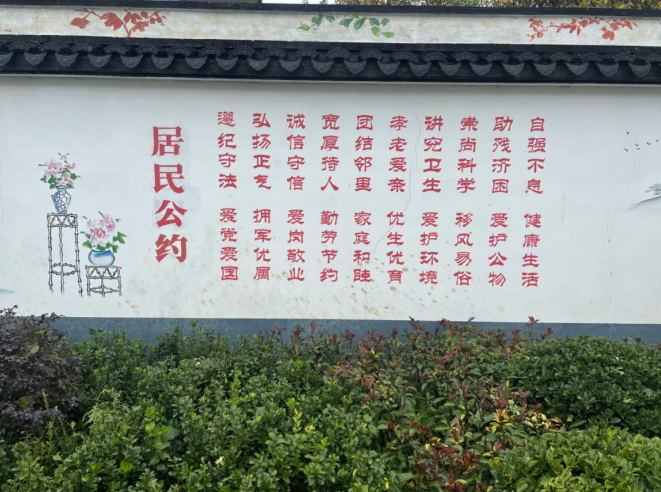 居民公约
遵纪守法 爱党爱国
弘扬正气 拥军优属
诚信守信 爱岗敬业
宽厚待人 勤劳节约
团结邻里 家庭和睦
孝老爱亲 优生优育
讲究卫生 爱护环境
崇尚科学 移风易俗
助残济困 爱护公物
自强不息 健康生活